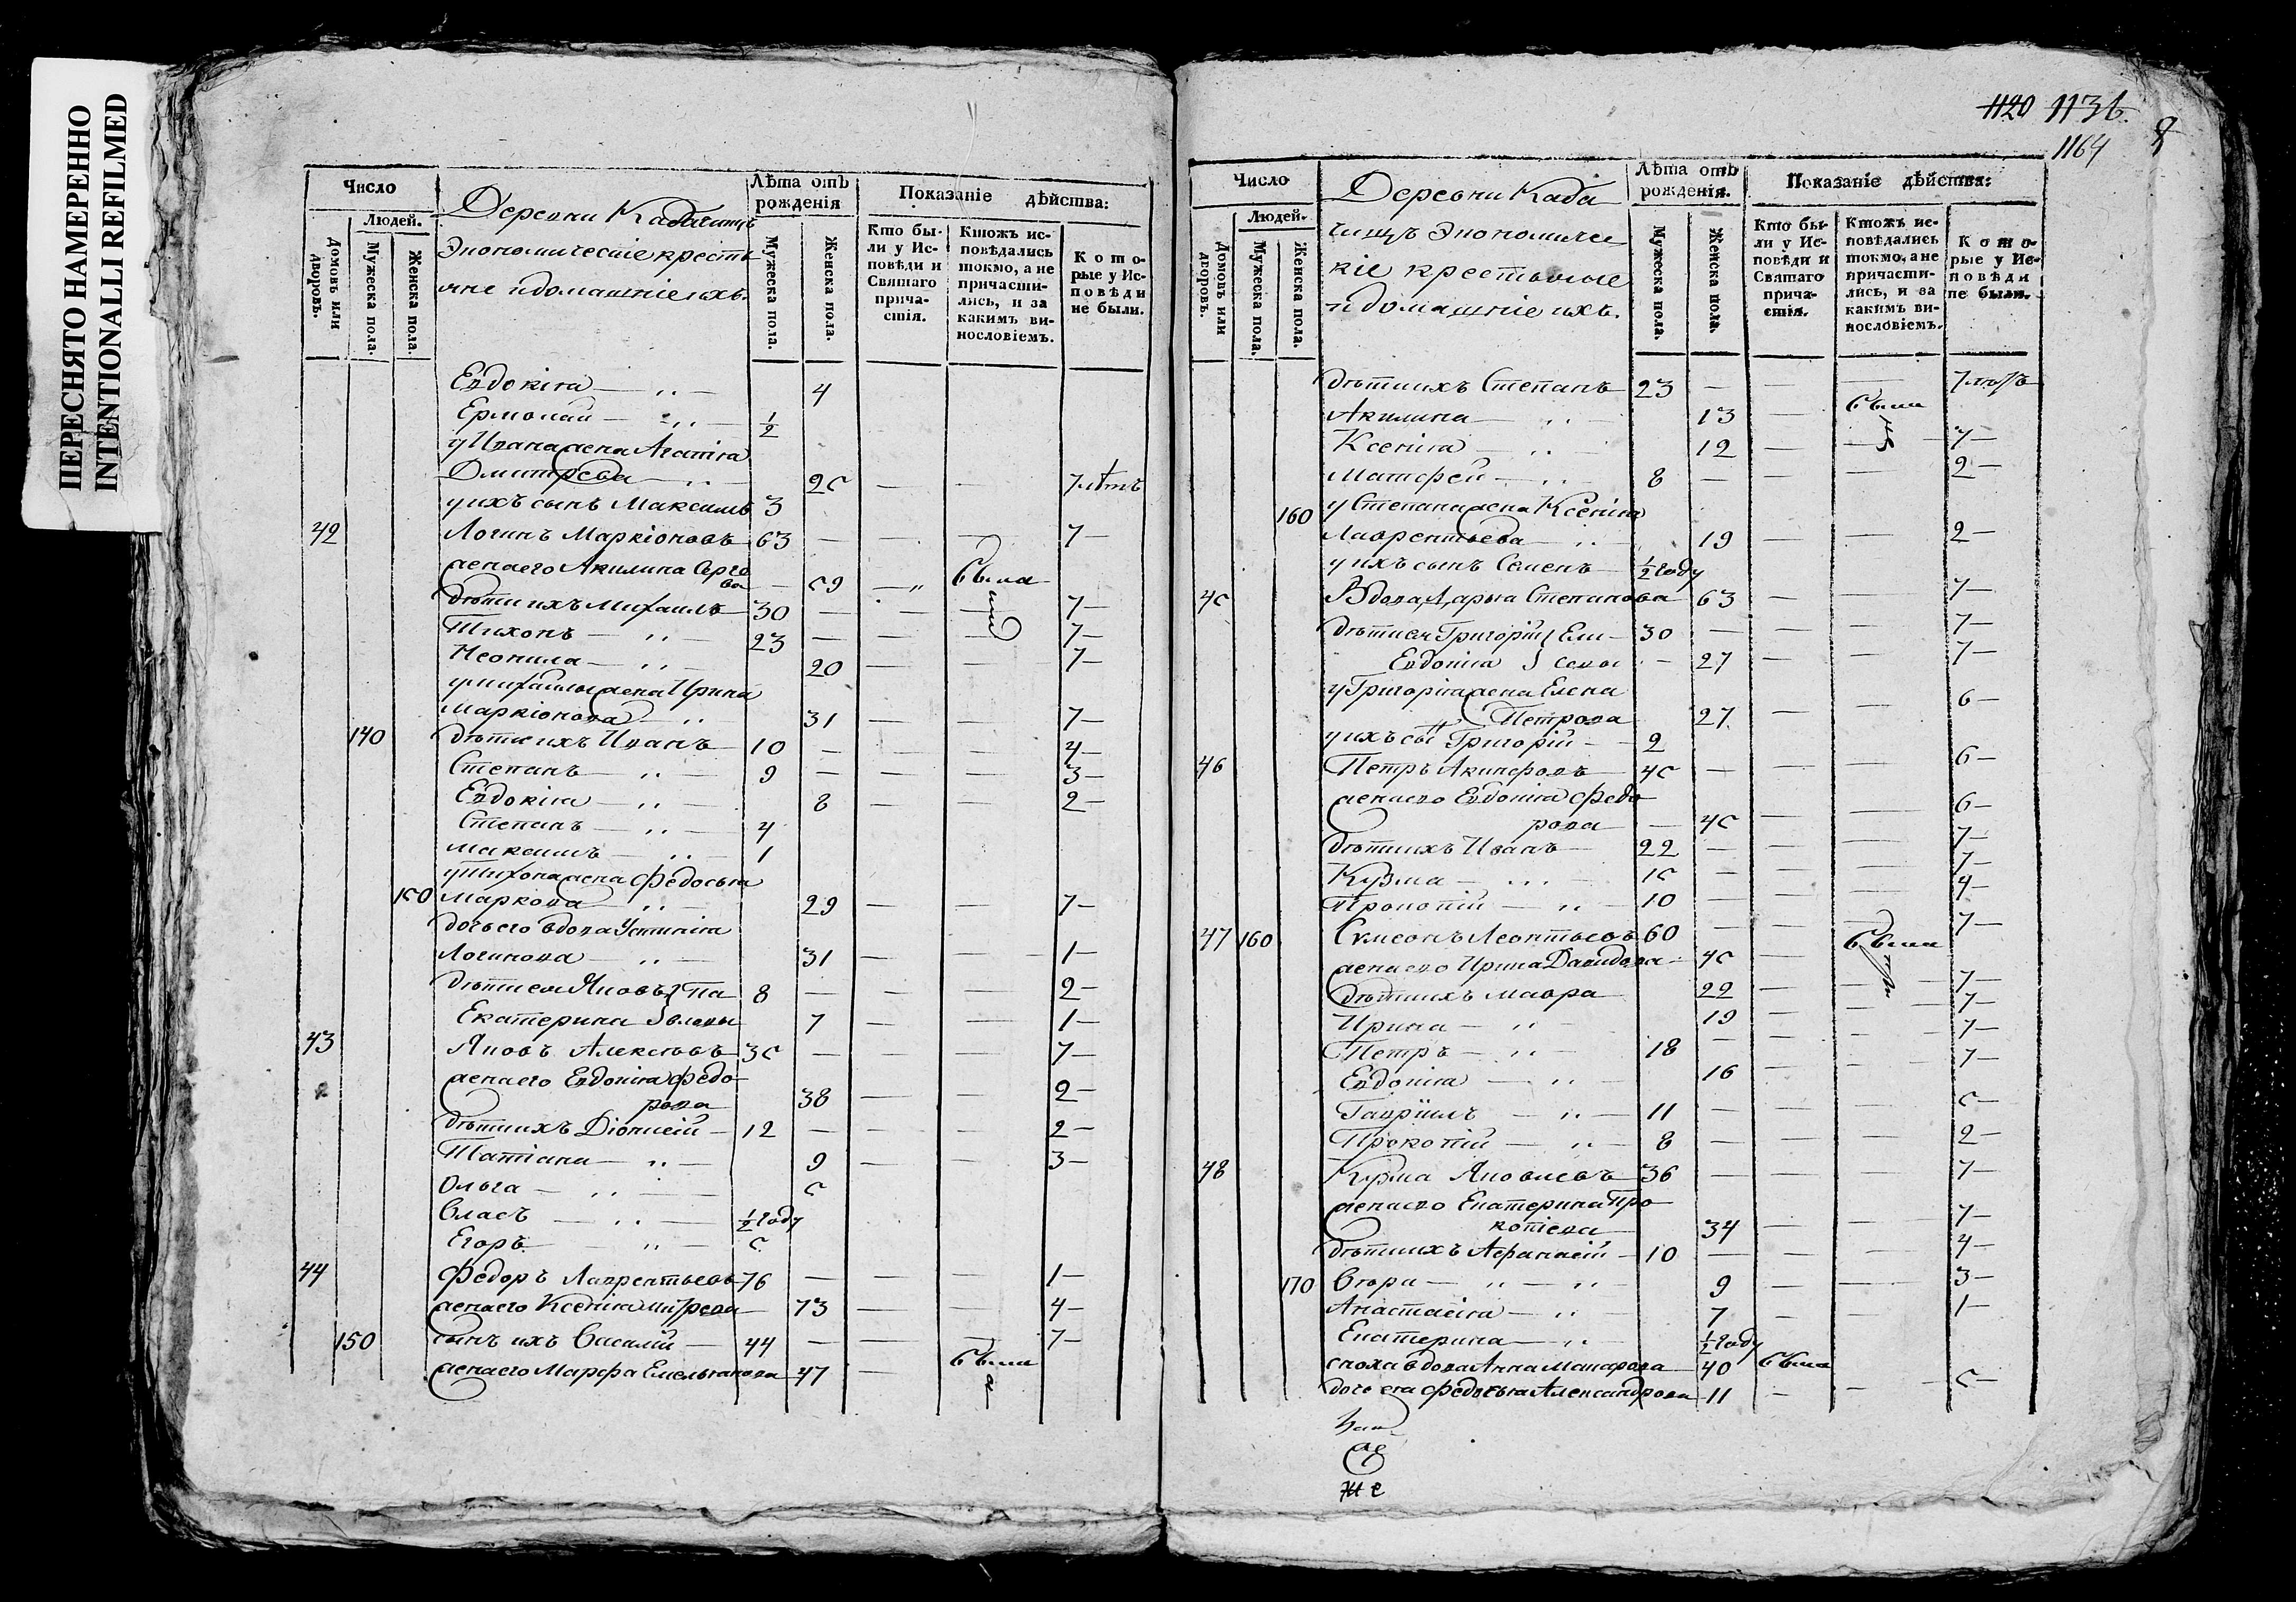 ПЕРЕСНЯТО НАМЕРЕННО
INTENTIONALLI REFILMED
Число
Людей.
Домовъ или дворовъ.
Мужеска пола.
Женска пола.
Деревни Кабачищъ
Экономическіе кресть
яне и домашніе ихъ.
Лѣта отъ рожденія
Мужеска пола.
Женска пола.
Показаніе дѣйства:
Кто были у Исповѣди и Святаго причастія.
Ктожъ исповѣдались токмо, а не причастились, и за какимъ винословіемъ.
Которые у Исповѣди не были.
Евдокіа — „ — 4
Ермолай — „ — ½
у Ивана жена Агапіа
Дмитрева — „ — 25 — — 7 лѣтъ
у ихъ сынъ Максимъ 3
42 Логинъ Маркіоновъ 63 — — — 7 —
жена его Акилина Серге
ва — 59 — „ была
дѣти ихъ Михаилъ 30 — — — 7 —
Тихонъ — „ — 23 — — — 7 —
Неонила — „ — 20 — — 7 —
у Михайлы жена Ирина
Маркіонова — „ 31 — — 7 —
140 дѣти ихъ Иванъ 10 — — — 4 —
Степанъ — „ — 9 — — — 3 —
Евдокіа — „ — 8 — — 2 —
Степанъ — „ — 4
Максимъ — „ — 1
у Тихона жена Федосьа
150 Маркова — „ — 29 — — 7 —
дочь его вдова Устиніа
Логинова — „ — 31 — — 1 —
дѣти ея Яковъ } Па 8 — — — 2 —
Екатерина } вловы 7 — — 1 —
43 Яковъ Алексѣевъ 35 — — — 7 —
жена его Евдокіа Федо
рова 38 — — 2 —
дѣти ихъ Діонисій — 12 — — — 2 —
Татіана — „ — 9 — — 3 —
Ольга — „ — 5
Власъ — „ — ½ году
Егоръ — „ — 5
44 Федоръ Лаврентьевъ 76 — — — 1 —
жена его Ксеніа 73 — — 4 —
150 сынъ ихъ Василій — 44 — — — 7 —
жена его Марфа Емельянова 47 — была
1120 1136.
1164
Число
Людей.
Домовъ или дворовъ.
Мужеска пола.
Женска пола.
Деревни Каба
чищъ Экономичес
кіе крестьяне
и домашніе ихъ.
Лѣта отъ рожденія.
Мужеска пола.
Женска пола.
Показаніе дѣйства:
Кто были у Исповѣди и Святаго причастія.
Ктожъ исповѣдались токмо, а не причастились, и за какимъ винословіемъ.
Которые у Исповѣди не были.
дѣти ихъ Степанъ 23 — — 7 лѣтъ
Акилина — „ — 13 — была
Ксеніа — „ — 12 — — 7 —
Матфей — „ 8 — — — 2 —
160 у Степана жена Ксеніа
Лаврентьева — „ 19 — — 2 —
у ихъ сынъ Семенъ — ½ году
45 Вдова Дарьа Степанова 63 — — 7 —
дѣти ея Григорій } Ели — 30 — — — 7 —
Евдокіа } сеевы — 27 — — 7 —
у Григоріа жена Елена
Петрова 27 — — 6 —
у ихъ сынъ Григорій — 2
46 Петръ Акинфовъ 45 — — — 6 —
жена его Евдокіа Федо
рова — 45 — — 6 —
дѣти ихъ Иванъ — 22 — — — 7 —
Кузма — „ 15 — — — 7 —
Прокопій — „ — 10 — — — 4 —
47 160 Симеонъ Леонтьевъ 60 — — — 7 —
жена его Ирина Давидова 45 — была
дѣти ихъ Мавра 22 — — 7 —
Ирина — „ — 19 — — 7 —
Петръ — „ — 18 — — — 7 —
Евдокіа — „ — 16 — — 7 —
Гавріилъ — „ — 11 — — — 5 —
Прокопій — „ — 8 — — — 2 —
48 Кузма Яковлевъ 36 — — — 7 —
жена его Екатерина Про
копіева — 34 — — 7 —
дѣти ихъ Афанасій — 10 — — — 4 —
170 — „ — „ — 9 — — 3 —
Анастасіа — „ — 7 — — 1 —
Екатерина — „ — ½ году
сноха вдова Анна Макарова 40 была
дочь ея Федосьа Александрова 11 — — 5 —